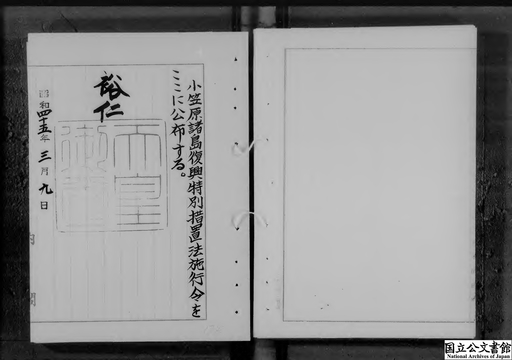 小笠原諸島復興特別措置法施行令を
ここに公布する。
裕仁
天皇御璽
昭和四十五年三月九日
内閣
国立公文書館
National Archives of Japan